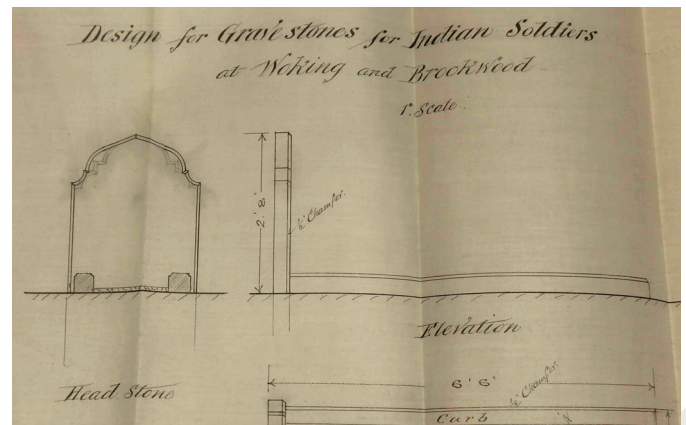 Design for Gravestones for Indian Soldiers
at Woking and Brockwood
1". Scale.
2' 8"
½" Chamfer.
Elevation
Head Stone
6' 6"
½" Chamfer.
Curb